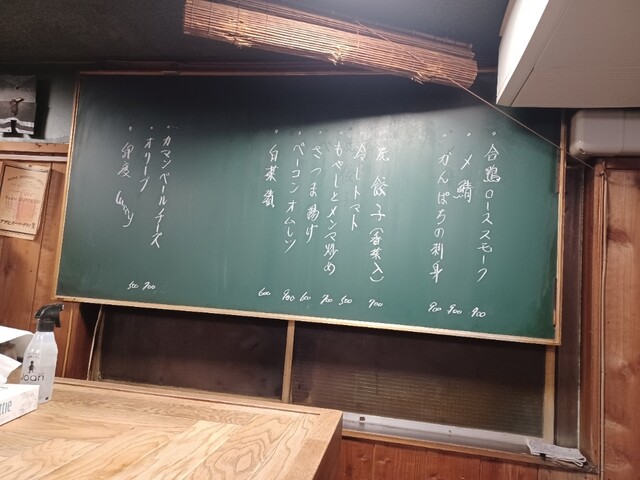 合鴨ローススモーク 900
〆鯖 900
がんぱちの刺身 900
尻餃子(香菜入) 700
冷しトマト 500
もやしとメンマ炒め 700
さつま揚げ 600
ベーコンオムレツ 900
白菜漬 600
カマンベールチーズ 700
オリーブ 500
印度